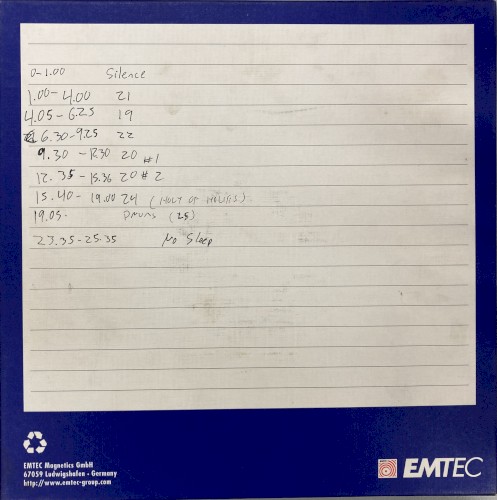 0-1.00 Silence
1.00-4.00 21
4.05-6.25 19
6.30-9.25 22
9.30-12.30 20 #1
12.35-15.36 20 #2
15.40-19.00 24 (HOLY OF HOLIES)
19.05- DRUMS (25)
23.35-25.35 No Sleep
EMTEC Magnetics GmbH
67059 Ludwigshafen · Germany
http://www.emtec-group.com
EMTEC